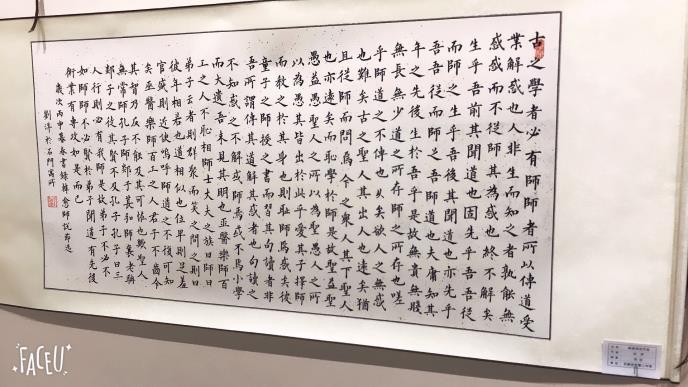 古之學者必有師師者所以傳道受
業解惑也人非生而知之者孰能無
惑惑而不從師其為惑也終不解矣
生乎吾前其聞道也固先乎吾吾從
而師之生乎吾後其聞道也亦先乎
吾吾從而師之吾師道也夫庸知其
年之先後生於吾乎是故無貴無賤
無長無少道之所存師之所存也嗟
乎師道之不傳也久矣欲人之無惑
也難矣古之聖人其出人也遠矣猶
且從師而問焉今之衆人其下聖人
也亦遠矣而恥學於師是故聖益聖
愚益愚聖人之所以為聖愚人之所
以為愚其皆出於此乎愛其子擇師
而教之於其身也則恥師焉惑矣彼
童子之師授之書而習其句讀者非
吾所謂傳其道解其惑者也句讀之
不知惑之不解或師焉或不焉小學
而大遺吾未見其明也巫醫樂師百
工之人不恥相師士大夫之族曰師曰
弟子云者則群聚而笑之問之則曰
彼年相若也道相似也位卑則足羞
官盛則近諛嗚呼師道之不復可知
矣巫醫樂師百工之人君子不齒今
其智乃反不能及其可怪也歟聖人
無常師孔子師郯子萇弘師襄老聃
郯子之徒其賢不及孔子孔子曰三
人行則必有我師是故弟子不必不
如師師不必賢於弟子聞道有先後
術業有專攻如是而已
歲次丙申暮春書錄韓愈師說節選
劉洋於石門寓所
FACEU